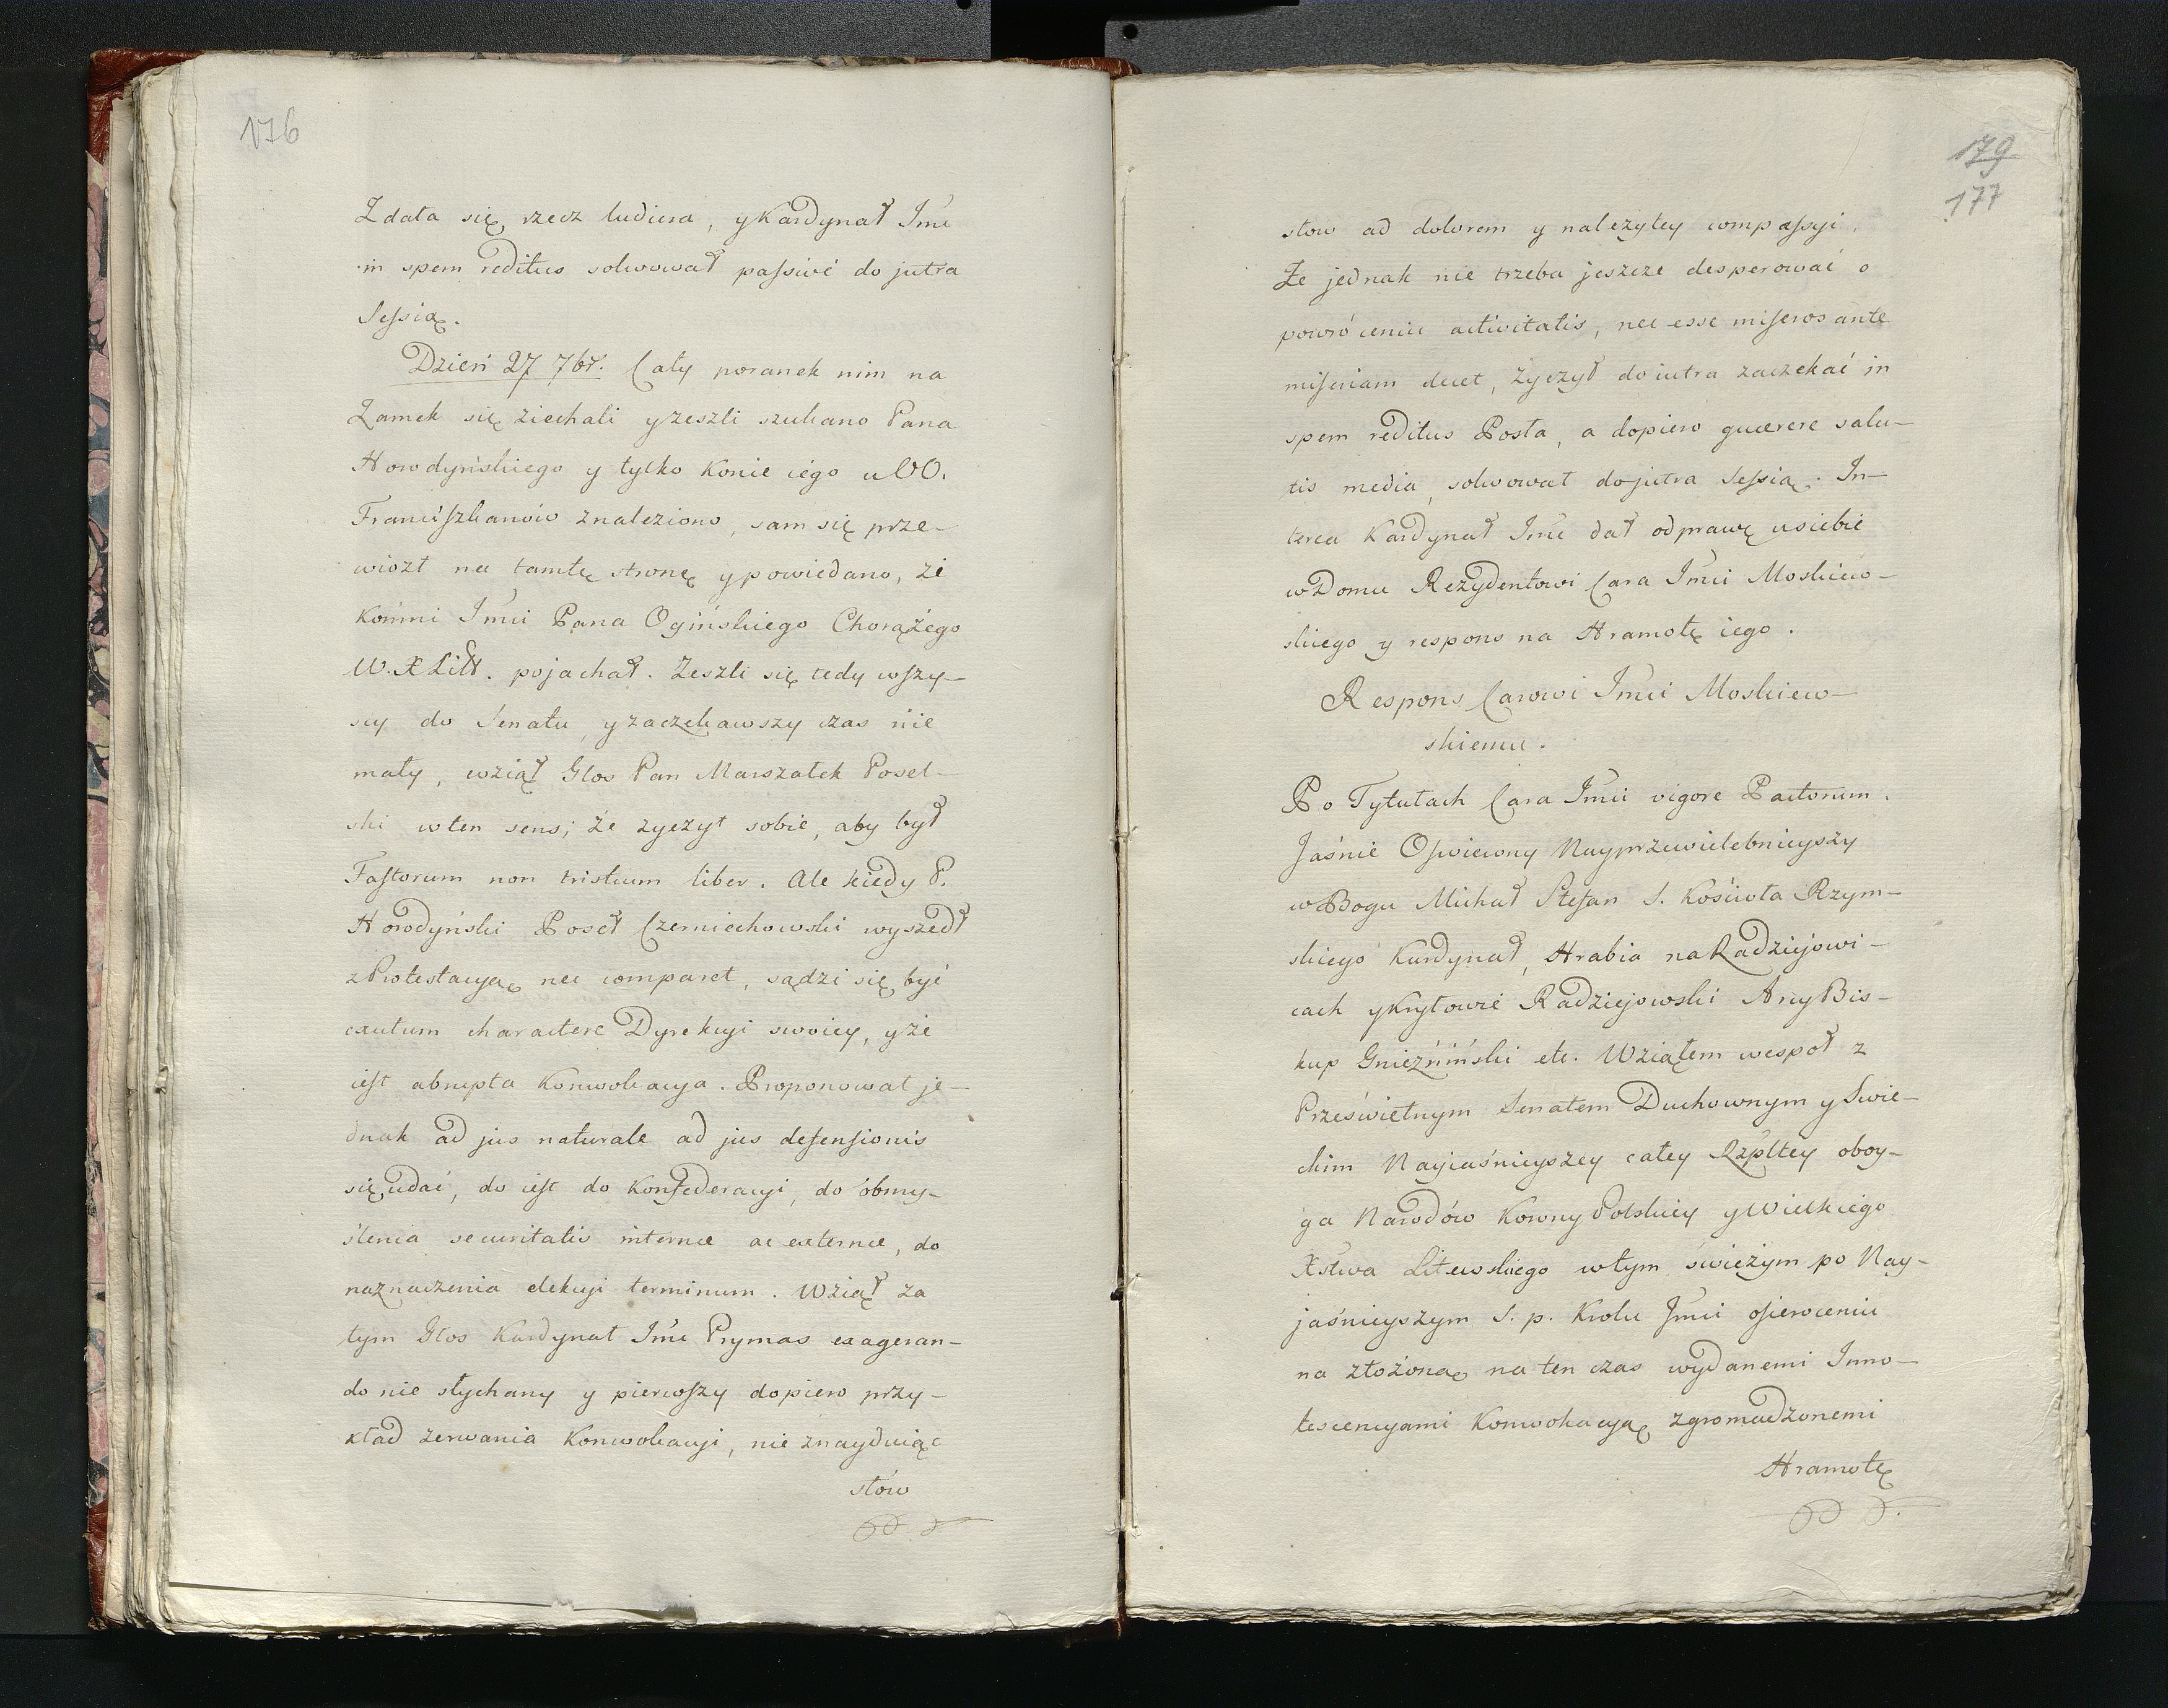 176
Zdała się rzecz ludicra, y Kardynał Jmć
in spem reditus solwował passivé do jutra
Sessią.
Dzień 27 7br. Cały poranek nim na
Zamek się ziechali y zeszli szukano Pana
Horodyńskiego y tylko Konie iego u OO.
Franciszkanów znaleziono, sam się prze-
wiozł na tamtę stronę y powiedano, że
Końmi Jmći Pana Ogińskiego Chorążego
W. X Litt. pojachał. Zeszli się tedy wszy-
scy do Senatu, y zaczekawszy czas nie
mały, wziął Głos Pan Marszałek Posel-
ski w ten sens; że życzył sobie, aby był
Fastorum non tristium liber. Ale kiedy P.
Horodyński Poseł Czerniechowski wyszedł
z Protestacyą nec comparet, sądzi się być
exutum charactere Dyrekcyi swoiey, y że
iest abrupta Konwokacya. Proponował je-
dnak ad jus naturale ad jus defensionis
się udać, do iest do Konfederacyi, do obmy-
ślenia securitatis internæ ac externæ, do
naznaczenia elekcyi terminum. Wziął za
tym Głos Kardynał Jmć Prymas exageran-
do nie słychany y pierwszy dopiero przy-
kład zerwania Konwokacyi, nie znayduiąc
słów
179
177
słow ad dolorem y należytey compassyi.
Że jednak nie trzeba jeszcze desperować o
powróceniu activitatis, nec esse miseros ante
miseriam decet, życzył do iutra zaczekać in
spem reditus Posła, a dopiero quærere salu-
tis media, solwował do jutra Sessią. In-
terea Kardynał Jmć dał odprawę u siebie
w Domu Rezydentowi Cara Jmći Moskiew-
skiego y respons na Hramotę iego.
Respons Carowi Jmći Moskiew-
skiemu.
Po Tytułach Cara Jmći vigore Pactorum.
Jaśnie Oswiecony Nayprzewielebnieyszy
w Bogu Michał Stefan S. Kościoła Rzym-
skiego Kardynał, Hrabia na Radziejowi-
cach y Kryłowie Radziejowski ArcyBis-
kup Gnieźniński etc. Wziąłem wespoł z
Prześwietnym Senatem Duchownym y Swie-
ckim Nayiaśnieyszey całey Rzpltey oboy-
ga Narodów Korony Polskiey y Wielkiego
Xstwa Litewskiego w tym świeżym po Nay-
jaśnieyszym S. p. Krolu Jmći osieroceniu
na złożoną na ten czas wydanemi Inno-
tescencyami Konwokacyą zgromadzonemi
Hramotę